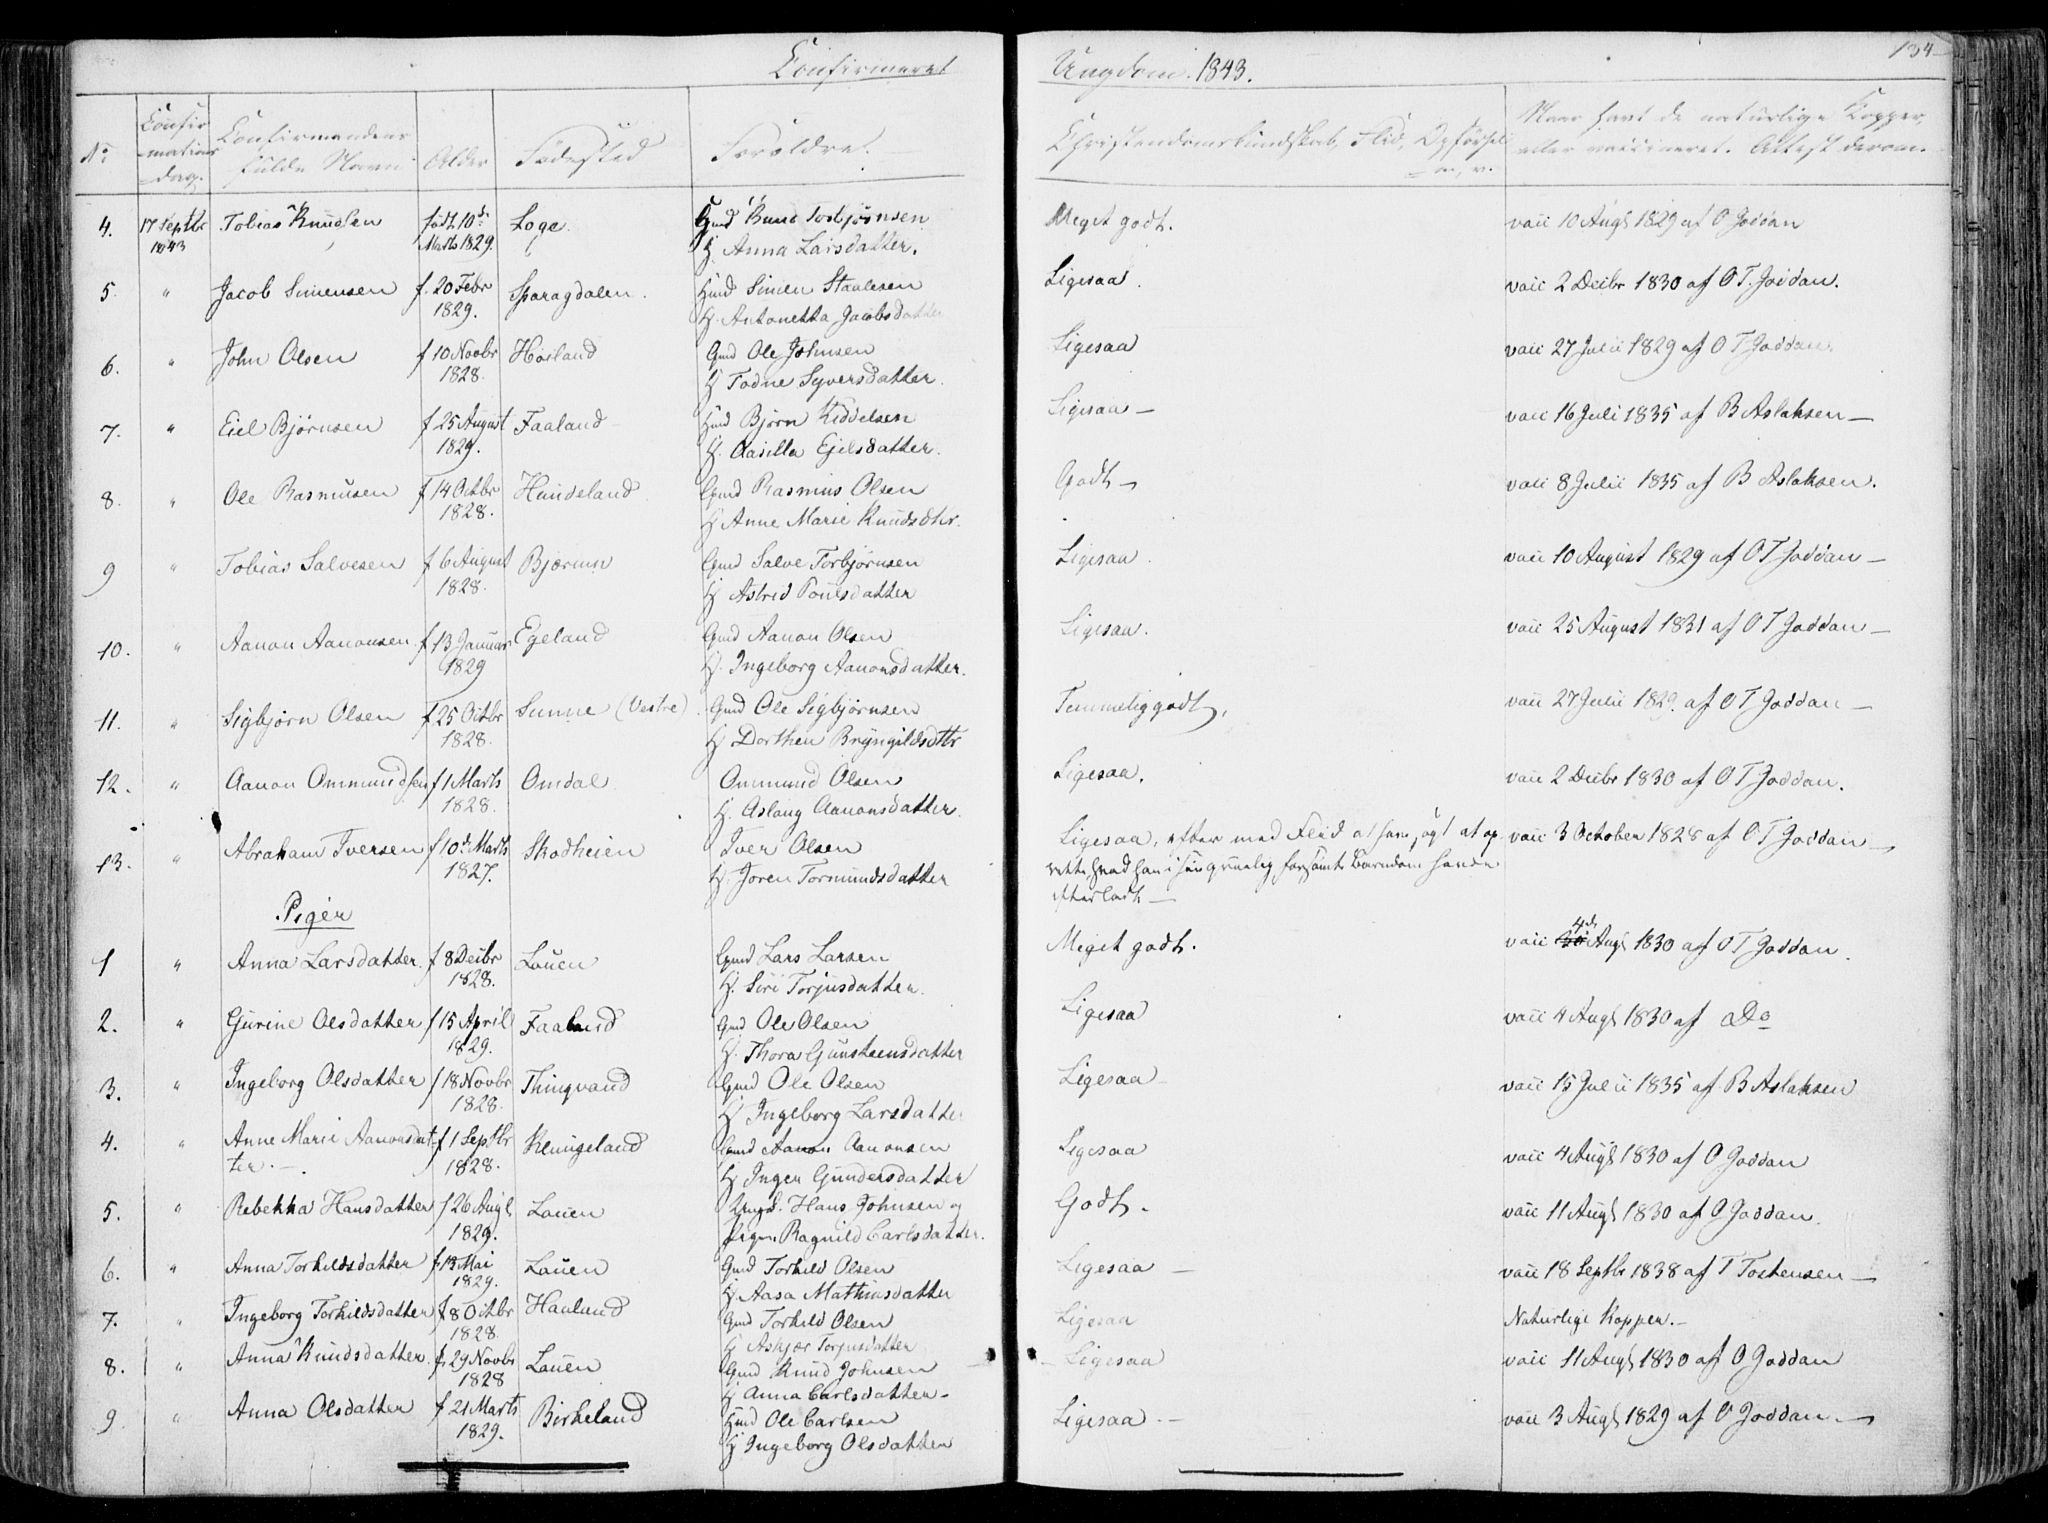 Confirmeret Ungdom. 1843.
134
No
Confir
mations
dag.
Confirmandens
fulde Navn
Alder
Fødested
Forældre.
Christendomskundskab, Flid, Opførsel
m. v.
Naar havt de naturlige Kopper,
eller vaccineret. Attest derom.
4. 17 Septbr 1843 Tobias Knudsen født 10de Marts 1829. Loge. Gmd Knud Torbjørnsen Meget godt. vacc 10 Augt 1829 af O Joddan
H Anna Larsdatter.
5. " Jacob Simensen f. 20 Febr 1829. Sparagdalen. Hmd Simen Staalesen Ligesaa. vacc 2 Decbr 1830 af O T. Joddan.
H. Antonetta Jacobsdatter
6. " John Olsen f 10 Novbr 1828. Høiland Gmd Ole Johnsen Ligesaa vacc 27 Julii 1829 af O T Joddan.
H Todne Syversdatter.
7. " Eiel Bjørnsen f 25 August 1829. Faaland Hmd Bjørn Kiddelsen Ligesaa — vacc 16 Juli 1835 af B Aslaksen —
H. Aasilla Ejelsdatter.
8. " Ole Rasmusen f 14 Octbr 1828. Hundeland Gmd Rasmus Olsen Godt — vacc 8 Julii 1835 af B Aslaksen.
H Anne Marie Knudsdtr.
9 " Tobias Salvesen f 6 August 1828. Bjærum Gmd Salve Torbjørnsen Ligesaa. vacc 10 August 1829 af O T Joddan —
H Astrid Poulsdatter
10. " Aanon Aanonsen f 13 Januar 1829 Egeland Gmd Aanon Olsen Ligesaa. vacc 25 August 1831 af O T Joddan —
H. Ingeborg Aanonsdatter.
11. " Sigbjørn Olsen f 25 Octbr 1828. Sunne (Vestre). Gmd Ole Sigbjørnsen Temmelig godt, vacc 27 Julii 1829. af O T Joddan —
H Dorthea Bryngildsdtr
12. " Aanon Ommundsen f 1 Marts 1828. Omdal Ommund Olsen Ligesaa. vacc 2 Decbr 1830 af O T Joddan.
H. Aslaug Aanonsdatter.
13. " Abraham Iversen f 10de Marts 1827. Skodheien Iver Olsen Ligesaa, efter med Flid at have søgt at op vacc 3 October 1828 af O T Joddan —
H. Joren Tormundsdatter rette, hvad han i sin gruelig forsømte Barndom havde
efterladt —
Piger
1 " Anna Larsdatter f 8 Decbr 1828. Lauen Gmd Lars Larsen Meget godt. vacc 4de Augt 1830 af O T Joddan.
H. Siri Torjusdatter.
2. " Gurine Olsdatter f 15 April 1829. Faaland Gmd Ole Olsen Ligesaa vacc 4 Augt 1830 af Do
H. Thora Gunsteensdatter
3. " Ingeborg Olsdatter f 18 Novbr 1828. Thingvand Gmd Ole Olsen Ligesaa — vacc 15 Julii 1835 af B Aslaksen
H Ingeborg Larsdatter
4. " Anne Marie Aanonsdat- f 1 Septbr 1828. Rengeland Gmd Aanon Aanonsen Ligesaa vacc 4 Augt 1830 af O Joddan
ter. —. H Inger Gundersdatter
5. " Rebekka Hansdatter f 26 Augt 1829. Lauen Ungk. Hans Johnsen og Godt. vacc 11 Augt 1830 af O Joddan.
Pigen Ragnild Carlsdatter.
6. " Anna Torkildsdatter f. 13 Mai 1829. Lauen Gmd Torkild Olsen Ligesaa — vacc 18 Septbr 1838 af T Tostensen —
H Aasa Mathiasdatter
7. " Ingeborg Torkildsdatter f 8 Octbr 1828. Haaland Gmd Torkild Olsen Ligesaa Naturlige Kopper. —
H Askjær Torjusdatter
8. " Anna Knudsdatter. f. 29 Novbr 1828 Lauen Gmd Knud Johnsen — Ligesaa vacc 11 Augt 1830 af O Joddan
H Anna Carlsdatter —
9. " Anna Olsdatter f 21 Marts 1829. Birkeland Hmd Ole Carlsen Ligesaa. — vacc 3 Augt 1829 af O Joddan. —
H Ingeborg Olsdatter